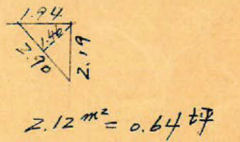 1.94
1.46
2.90
2.19
2.12 m² = 0.64 坪